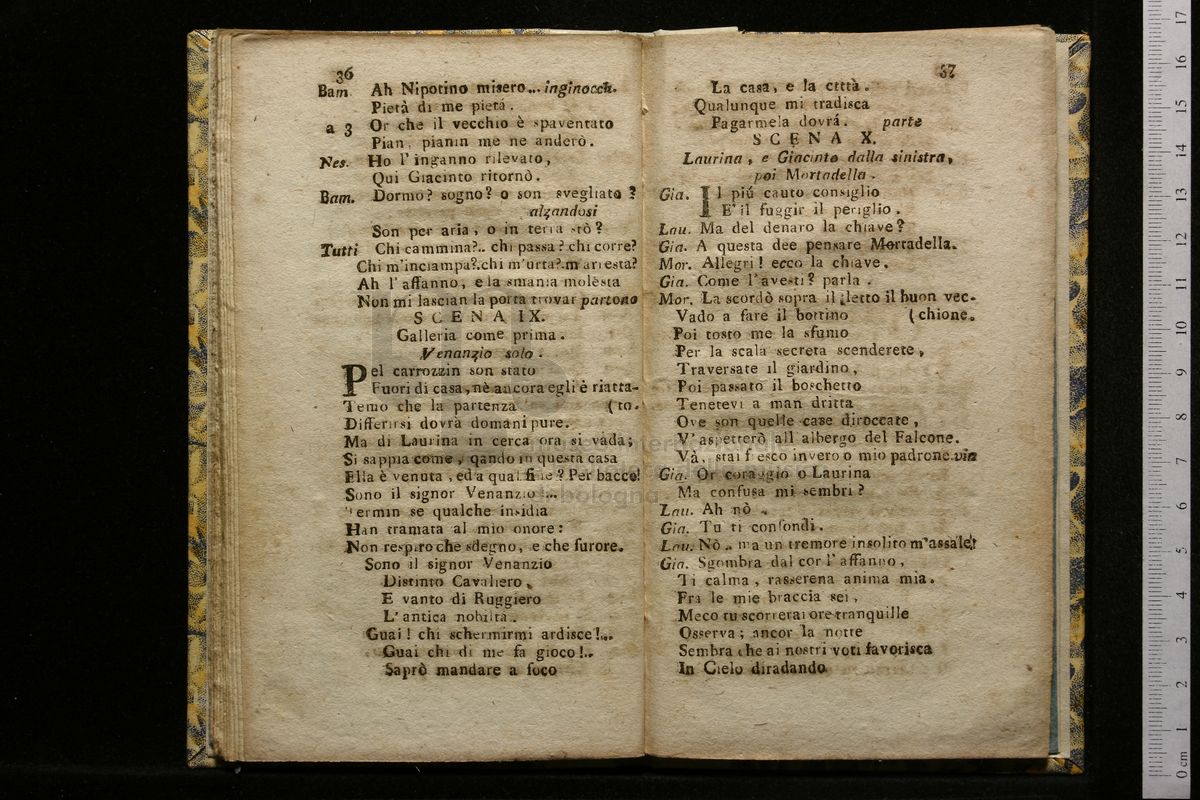 36
Bam. Ah Nipotino misero... inginocch.
Pietà di me pietà.
a 3 Or che il vecchio è spaventato
Pian, pianin me ne anderò.
Nes. Ho l'inganno rilevato,
Qui Giacinto ritornò.
Bam. Dormo? sogno? o son svegliato?
alzandosi
Son per aria, o in terra stò?
Tutti Chi cammina?.. chi passa? chi corre?
Chi m'inciampa?.chi m'urta?.m'arresta?
Ah l'affanno, e la smania molesta
Non mi lascian la porta trovar partono
SCENA IX.
Galleria come prima.
Venanzio solo.
Pel carrozzin son stato
Fuori di casa, nè ancora egli è riatta-
Temo che la partenza (to.
Differirsi dovrà domani pure.
Ma di Laurina in cerca ora si vada;
Si sappia come, qando in questa casa
Ella è venuta, ed a qual fine? Per bacco!
Sono il signor Venanzio!...
Termin se qualche insidia
Han tramata al mio onore:
Non respiro che sdegno, e che furore.
Sono il signor Venanzio
Distinto Cavaliero,
E vanto di Ruggiero
L'antica nobiltà.
Guai! chi schermirmi ardisce!...
Guai chi di me fa gioco!..
Saprò mandare a foco
37
La casa, e la città.
Qualunque mi tradisca
Pagarmela dovrá. parte
SCENA X.
Laurina, e Giacinto dalla sinistra,
poi Mortadella.
Gia. Il piú cauto consiglio
E' il fuggir il periglio.
Lau. Ma del denaro la chiave?
Gia. A questa dee pensare Mortadella.
Mor. Allegri! ecco la chiave.
Gia. Come l'avesti? parla.
Mor. La scordò sopra il letto il buon vec-
Vado a fare il bottino (chione.
Poi tosto me la sfumo
Per la scala secreta scenderete,
Traversate il giardino,
Poi passato il boschetto
Tenetevi a man dritta
Ove son quelle case diroccate,
V'aspetterò all albergo del Falcone.
Và, stai fresco invero o mio padrone.via
Gia. Or coraggio o Laurina
Ma confusa mi sembri?
Lau. Ah nò.
Gia. Tu ti confondi.
Lau. Nò.. ma un tremore insolito m'assale!
Gia. Sgombra dal cor l'affanno,
Ti calma, rasserena anima mia.
Fra le mie braccia sei,
Meco tu scorrerai ore tranquille
Osserva; ancor la notte
Sembra che ai nostri voti favorisca
In Cielo diradando